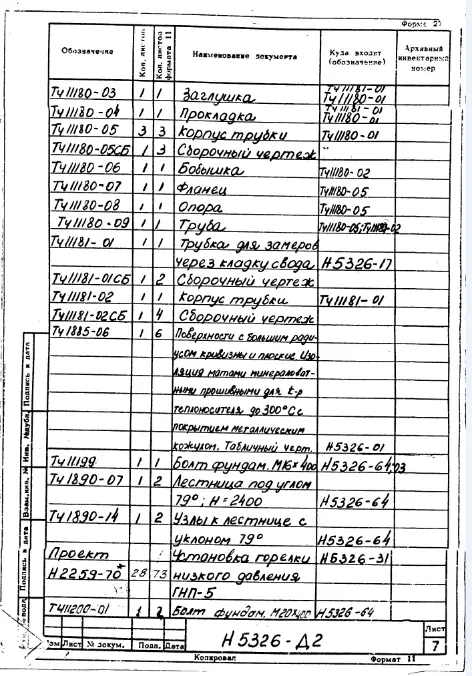 Форма 21
Обозначение Кол. листов Кол. листов формата 11 Наименование документа Куда входят (обозначение) Архивный инвентарный номер
ТУ11180-03 1 1 Заглушка ТУ11181-01 ТУ11180-01
ТУ11180-04 1 1 Прокладка ТУ11181-01 ТУ11180-01
ТУ11180-05 3 3 Корпус трубки ТУ11180-01
ТУ11180-05СБ 1 3 Сборочный чертеж
ТУ11180-06 1 1 Бобышка ТУ11180-02
ТУ11180-07 1 1 Фланец ТУ11180-05
ТУ11180-08 1 1 Опора ТУ11180-05
ТУ11180-09 1 1 Труба ТУ11180-05; ТУ11180-02
ТУ11181-01 1 1 Трубка для замеров
через кладку свода Н5326-17
ТУ11181-01СБ 1 2 Сборочный чертеж
ТУ11181-02 1 1 Корпус трубки ТУ11181-01
ТУ11181-02СБ 1 4 Сборочный чертеж
ТУ1885-06 1 6 Поверхности с большим ради-
усом кривизны и плоские. Изо-
ляция матами минераловат-
ными прошивными для t-р
теплоносителя до 300°С с
покрытием металлическим
кожухом. Табличный черт. Н5326-01
ТУ11199 1 1 Болт фундам. М16×400 Н5326-64,03
ТУ1890-07 1 2 Лестница под углом
79°; Н=2400 Н5326-64
ТУ1890-14 1 2 Узлы к лестнице с
уклоном 79° Н5326-64
Проект Установка горелки Н5326-31
Н2259-70 28 73 низкого давления
ГНП-5
ТУ11200-01 1 2 Болт фундам. М20х400 Н5326-64
Подпись и дата
Инв. № дубл.
Взам. инв. №
Подпись и дата
Изм Лист № докум. Подп. Дата
Н5326-Д2
Лист
7
Копировал Формат 11